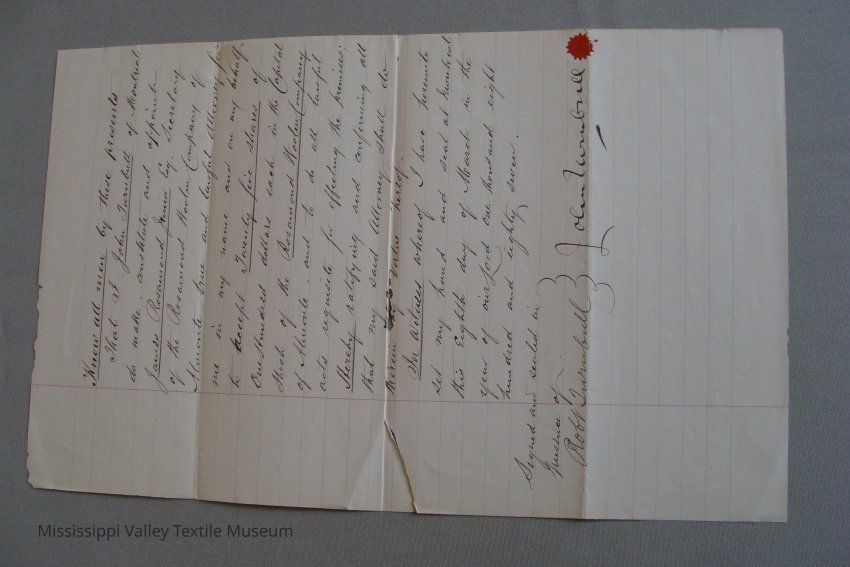 Know all men by these presents
That I John Turnbull of Montreal
do make, constitute and appoint
James Rosamond Junior Esq. Secretary
of the Rosamond Woolen Company of
Almonte true and lawful Attorney for
me in my name and on my behalf.
to accept Twenty five shares of
One Hundred dollars each in the Capital
Stock of the Rosamond Woolen Company
of Almonte, and to do all lawful
acts requisite for effecting the premises;
Hereby ratifying and confirming all
that my said Attorney shall do
therein by virtue hereof.
In Witness whereof I have hereunto
set my hand and seal at Montreal
this Eighth day of March in the
year of our Lord One thousand eight
hundred and eighty seven.
Signed and sealed in
presence of
Robt Turnbull
John Turnbull
Mississippi Valley Textile Museum